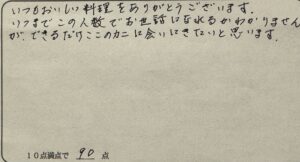 いつもおいしい料理をありがとうございます。
いつまでこの人数でお世話になれるかわかりません
が、できるだけここのカニに会いにきたいと思います。
10点満点で 90 点